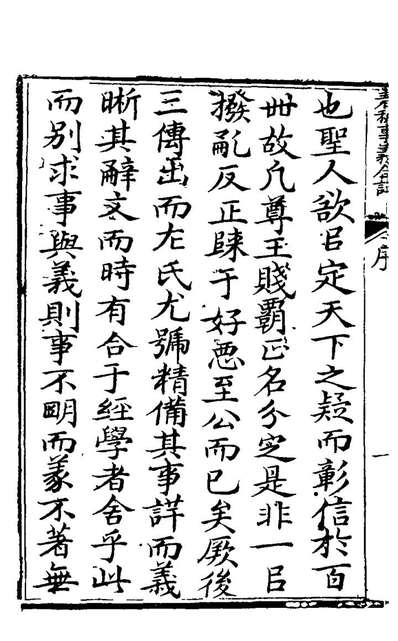 春秋事義全考
序
一
也聖人欲㠯定天下之疑而彰信於百
世故凡尊王賤霸正名分定是非一㠯
撥亂反正歸于好惡至公而已矣厥後
三傳出而左氏尤號精備其事詳而義
晰其辭文而時有合于經學者舍乎此
而别求事與義則事不明而義不著無